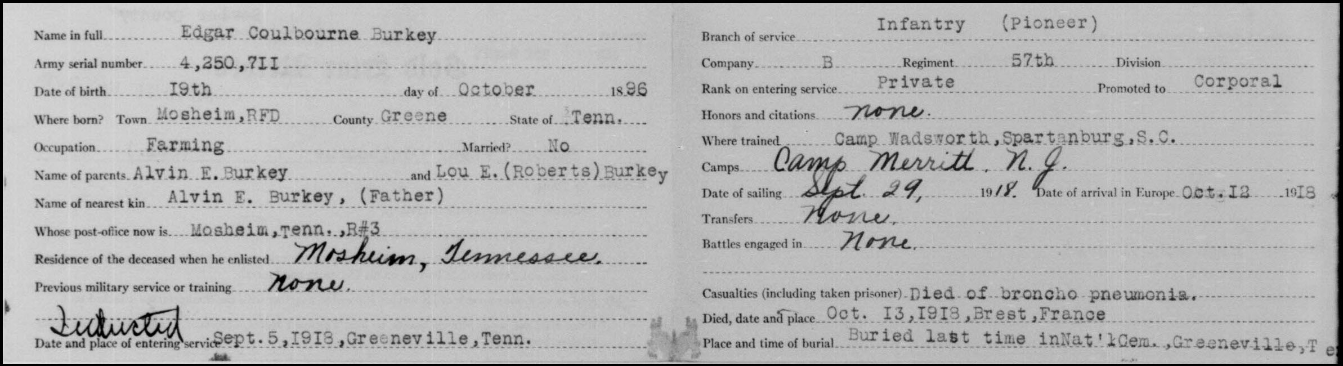 Name in full Edgar Coulbourne Burkey
Army serial number 4,250,7II
Date of birth I9th day of October 1896
Where born? Town Mosheim,RFD County Greene State of Tenn.
Occupation Farming Married? No
Name of parents Alvin E.Burkey and Lou E.(Roberts)Burkey
Name of nearest kin Alvin E. Burkey, (Father)
Whose post-office now is Mosheim,Tenn.,R#3
Residence of the deceased when he enlisted Mosheim, Tennessee.
Previous military service or training None.
Inducted
Date and place of entering service Sept.5,I9I8,Greeneville,Tenn.
Branch of service Infantry (Pioneer)
Company B Regiment 57th Division
Rank on entering service Private Promoted to Corporal
Honors and citations none.
Where trained Camp Wadsworth,Spartanburg,S.C.
Camps Camp Merritt, N.J.
Date of sailing Sept 29, 1918. Date of arrival in Europe Oct.I2 1918
Transfers None.
Battles engaged in None.
Casualties (including taken prisoner) Died of broncho pneumonia.
Died, date and place Oct. I3,I9I8,Brest,France
Place and time of burial Buried last time inNat'lCem.,Greeneville,Te